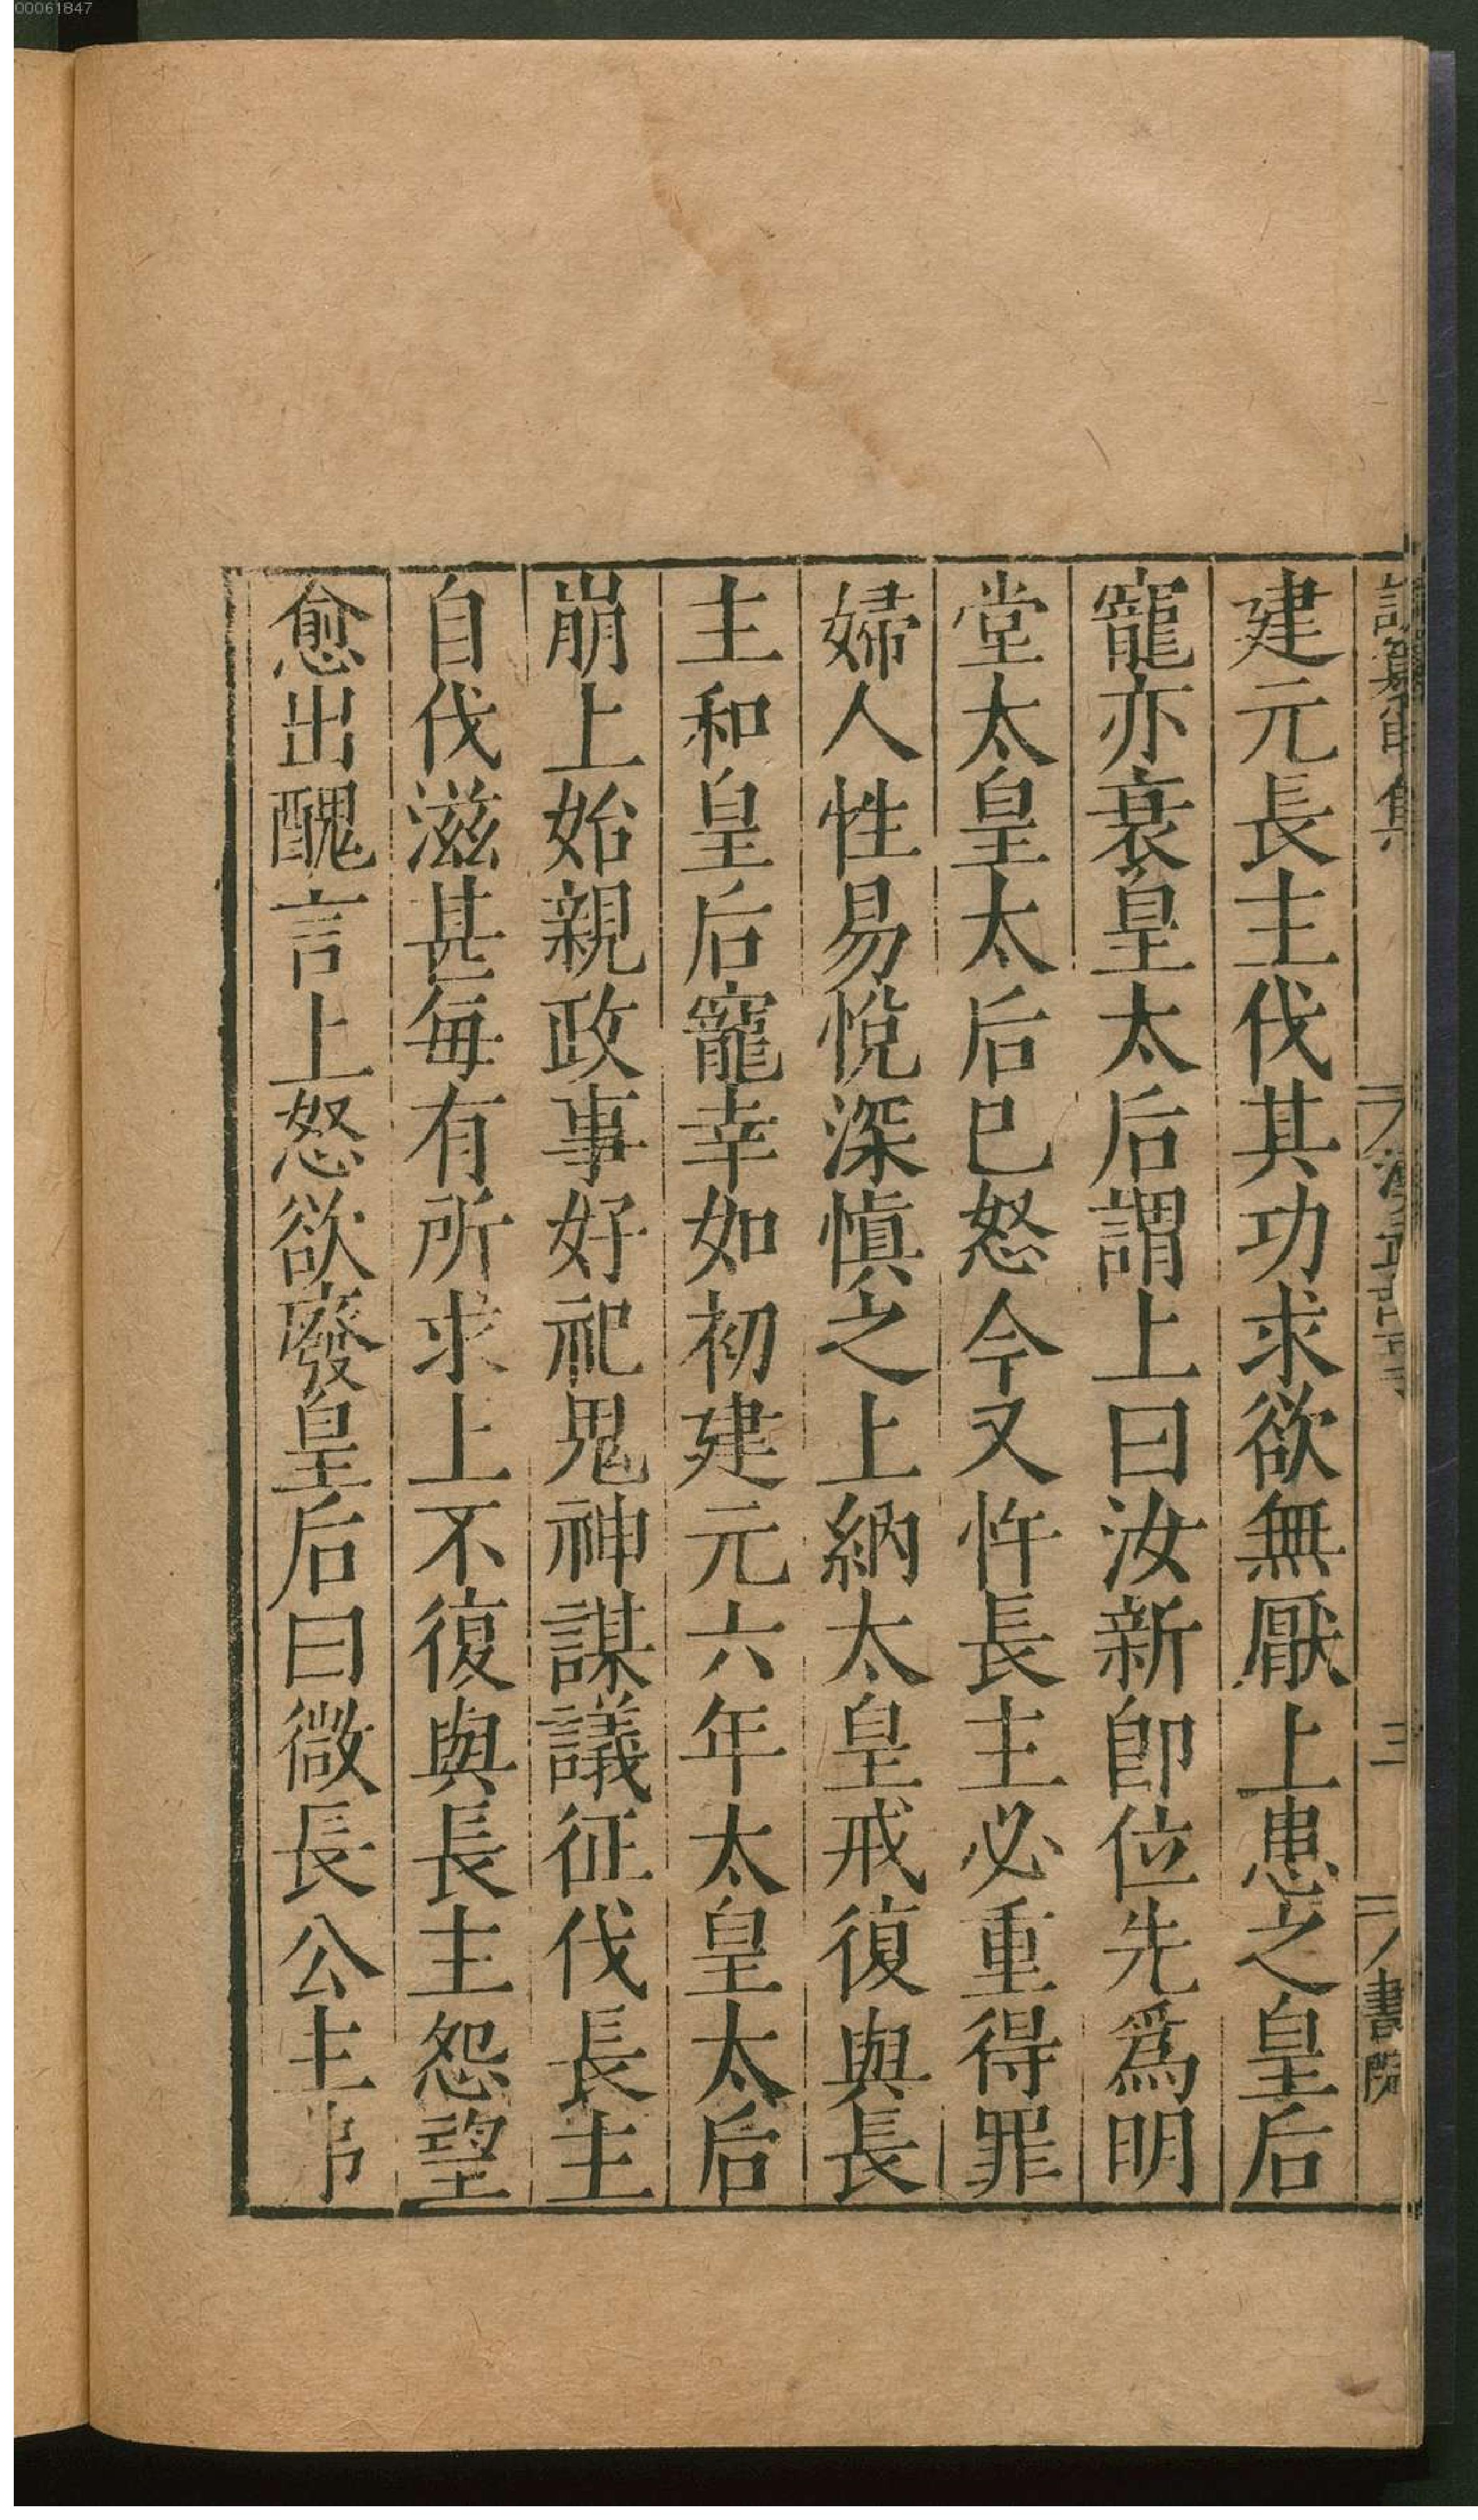 建元長主伐其功求欲無厭上患之皇后
寵亦衰皇太后謂上曰汝新即位先爲明
堂太皇太后已怒今又忤長主必重得罪
婦人性易悅深慎之上納太皇戒復與長
主和皇后寵幸如初建元六年太皇太后
崩上始親政事好祀鬼神謀議征伐長主
自伐滋甚每有所求上不復與長主怨望
愈出醜言上怒欲廢皇后曰微長公主弗
三
書院
00061847